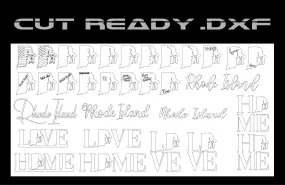 CUT READY .DXF
Rhode Island
Rhode Island
Rhode Island
Rhode Island
HOME
LOVE
LOVE
LOVE
LOVE
HOME
HOME
HOME